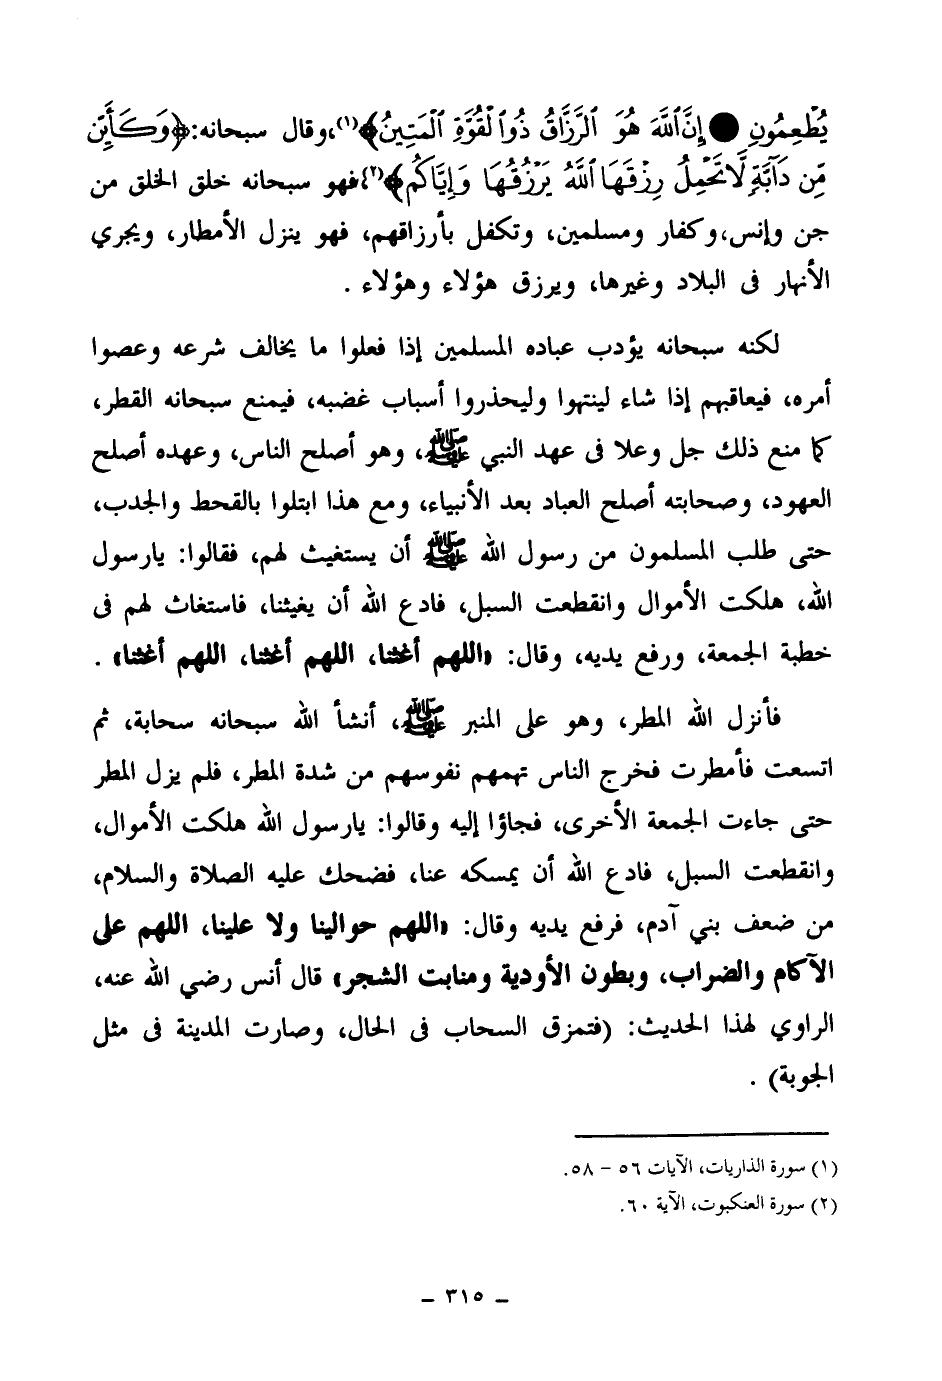 يُطْعِمُونِ ● إِنَّ ٱللَّهَ هُوَ ٱلرَّزَّاقُ ذُو ٱلْقُوَّةِ ٱلْمَتِينُ﴾(١)، وقال سبحانه: ﴿وَكَأَيِّن
مِّن دَآبَّةٍ لَّا تَحْمِلُ رِزْقَهَا ٱللَّهُ يَرْزُقُهَا وَإِيَّاكُمْ﴾(٢) فهو سبحانه خلق الخلق من
جن وإنس، وكفار ومسلمين، وتكفل بأرزاقهم، فهو ينزل الأمطار، ويجري
الأنهار فى البلاد وغيرها، ويرزق هؤلاء وهؤلاء .
لكنه سبحانه يؤدب عباده المسلمين إذا فعلوا ما يخالف شرعه وعصوا
أمره، فيعاقبهم إذا شاء لينتهوا وليحذروا أسباب غضبه، فيمنع سبحانه القطر،
كما منع ذلك جل وعلا فى عهد النبي ﷺ، وهو أصلح الناس، وعهده أصلح
العهود، وصحابته أصلح العباد بعد الأنبياء، ومع هذا ابتلوا بالقحط والجدب،
حتى طلب المسلمون من رسول الله ﷺ أن يستغيث لهم، فقالوا: يارسول
الله، هلكت الأموال وانقطعت السبل، فادع الله أن يغيثنا، فاستغاث لهم فى
خطبة الجمعة، ورفع يديه، وقال: «اللهم أغثنا، اللهم أغثنا، اللهم أغثنا» .
فأنزل الله المطر، وهو على المنبر ﷺ، أنشأ الله سبحانه سحابة، ثم
اتسعت فأمطرت فخرج الناس تهمهم نفوسهم من شدة المطر، فلم يزل المطر
حتى جاءت الجمعة الأخرى، فجاؤا إليه وقالوا: يارسول الله هلكت الأموال،
وانقطعت السبل، فادع الله أن يمسكه عنا، فضحك عليه الصلاة والسلام،
من ضعف بني آدم، فرفع يديه وقال: «اللهم حوالينا ولا علينا، اللهم على
الآكام والضراب، وبطون الأودية ومنابت الشجر» قال أنس رضي الله عنه،
الراوي لهذا الحديث: (فتمزق السحاب فى الحال، وصارت المدينة فى مثل
الجوبة) .
(١) سورة الذاريات، الآيات ٥٦ – ٥٨.
(٢) سورة العنكبوت، الآية ٦٠.
– ٣١٥ –